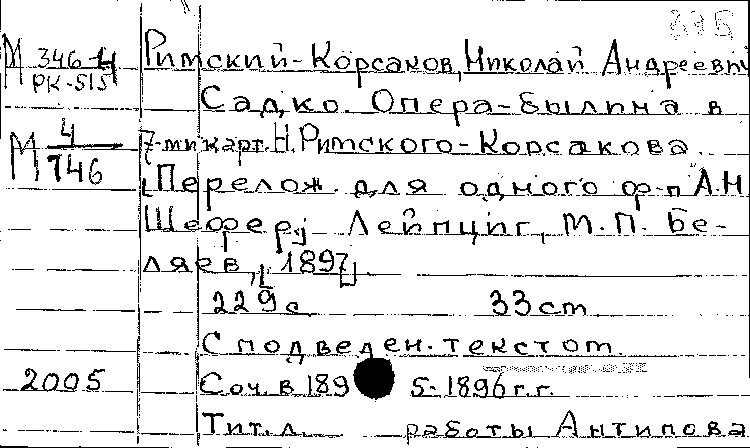 Римский-Корсаков, Николай Андреевич
М 346-4
РК-515
Садко. Опера-былина в
М 4/746
7-ми карт. Н. Римского-Корсакова.
[Перелож. для одного ф-п А.Н
Шефер] Лейпциг, М.П. Бе-
ляев, [1897].
229 с 33 cm
С подведен. текстом.
2005 Соч. в 1895-1896 г.г.
Тит. л. работы Антипова